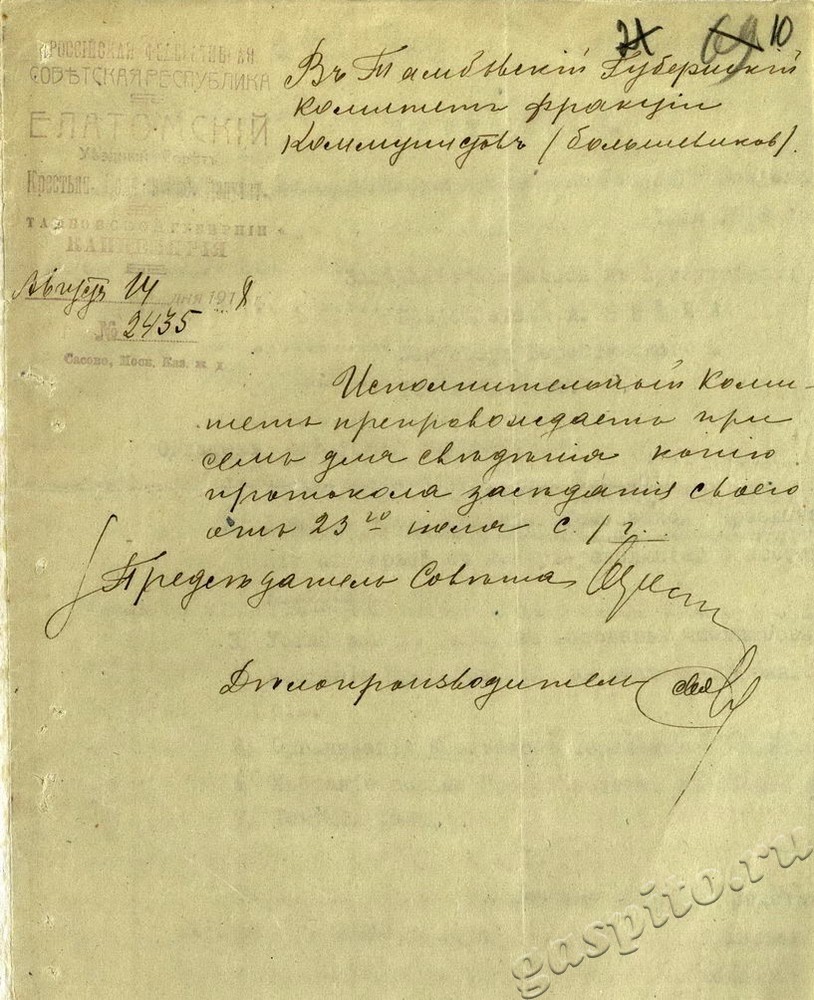 21 69 10
РОССІЙСКАЯ ФЕДЕРАТИВНАЯ
СОВѢТСКАЯ РЕСПУБЛИКА
ЕЛАТОМСКІЙ
Крестьян.
ТАМБОВСКОЙ ГУБЕРНІИ
КАНЦЕЛЯРІЯ
Августъ 14 дня 1918 г.
№ 2435
Сасово, Моск. Каз. ж. д.
Въ Тамбовскій Губернскій
комитетъ фракціи
Коммунистовъ (большевиков).
Исполнительный Коми-
тетъ препровождаетъ при
семъ для свѣдѣнія копію
протокола засѣданія своего
отъ 23го іюля с./г.
Предсѣдатель Совѣта
Дѣлопроизводитель
gaspito.ru